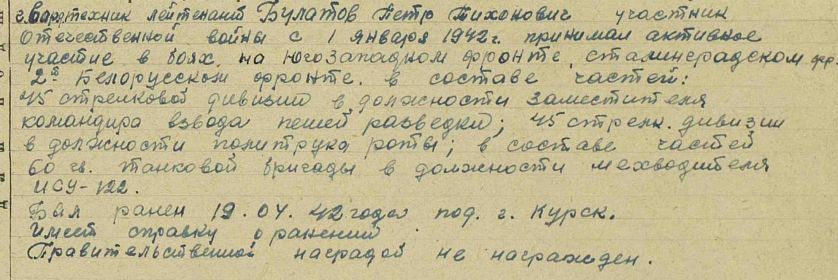 гвард. техник лейтенант Булатов Петр Тихонович участник
Отечественной войны с 1 января 1942 г. принимал активное
участие в боях, на Югозападном фронте, сталинградском фр.
2ª Белорусском фронте. в составе частей:
45 стрелковой дивизии в должности заместителя
командира взвода пешей разведки; 45 стрелк. дивизии
в должности политрука роты; в составе частей
60 гв. танковой бригады в должности мехводителя
ИСУ-122.
Был ранен 19.04.42 года под. г. Курск.
Имеет справку о ранении
Правительственной наградой не награжден.